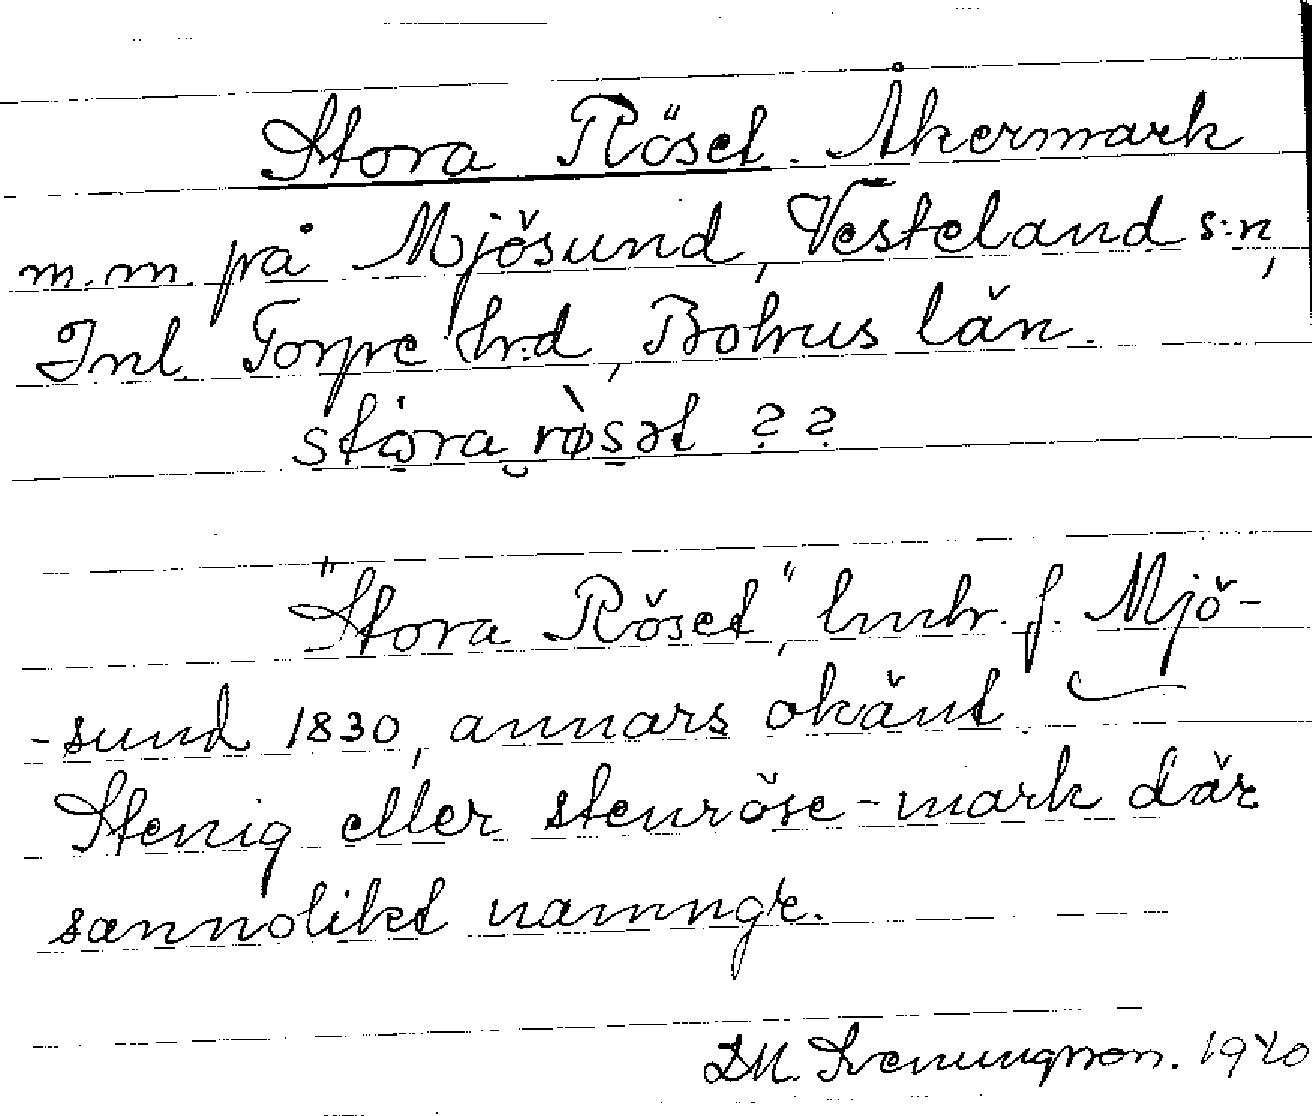 Stora Röset. Åkermark
m.m. på Mjösund, Vesteland s:n,
Inl. Torpe hrd, Bohus län.
stora røsət ??
"Stora Röset", lmhr. f. Mjö-
-sund 1830, annars okänt.
Stenig eller stenröse-mark där
sannolikt namngr.
DM. Sveningson. 1940